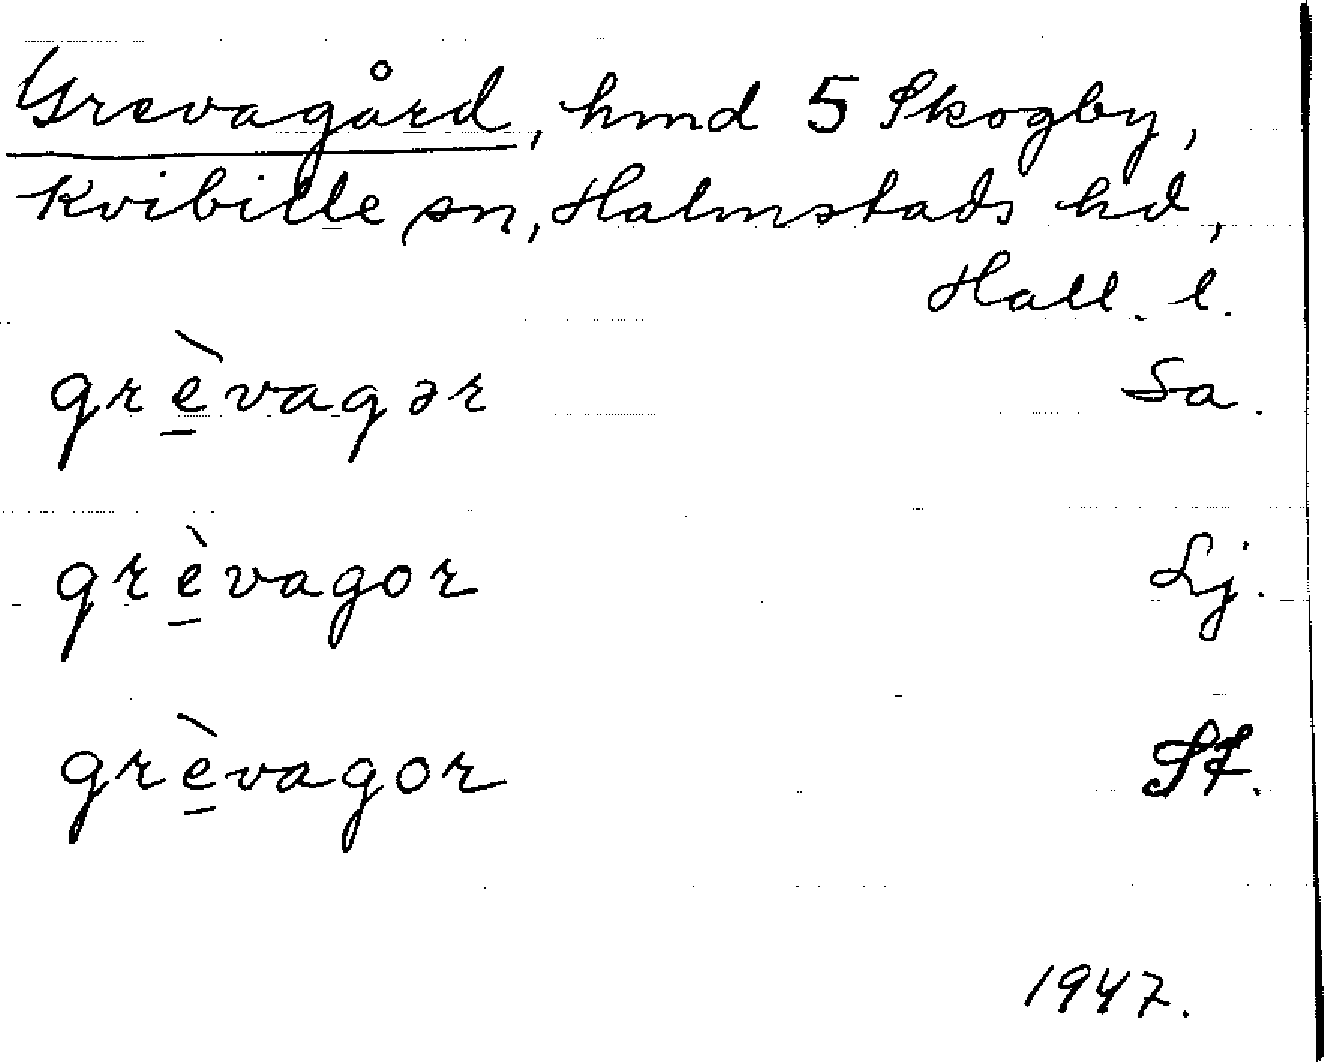 Grevagård, hmd 5 Skogby,
Kvibille sn, Halmstads hd,
Hall. l.
grè̱vagər Sa.
grè̱vagor Lj.
grè̱vagor St.
1947.